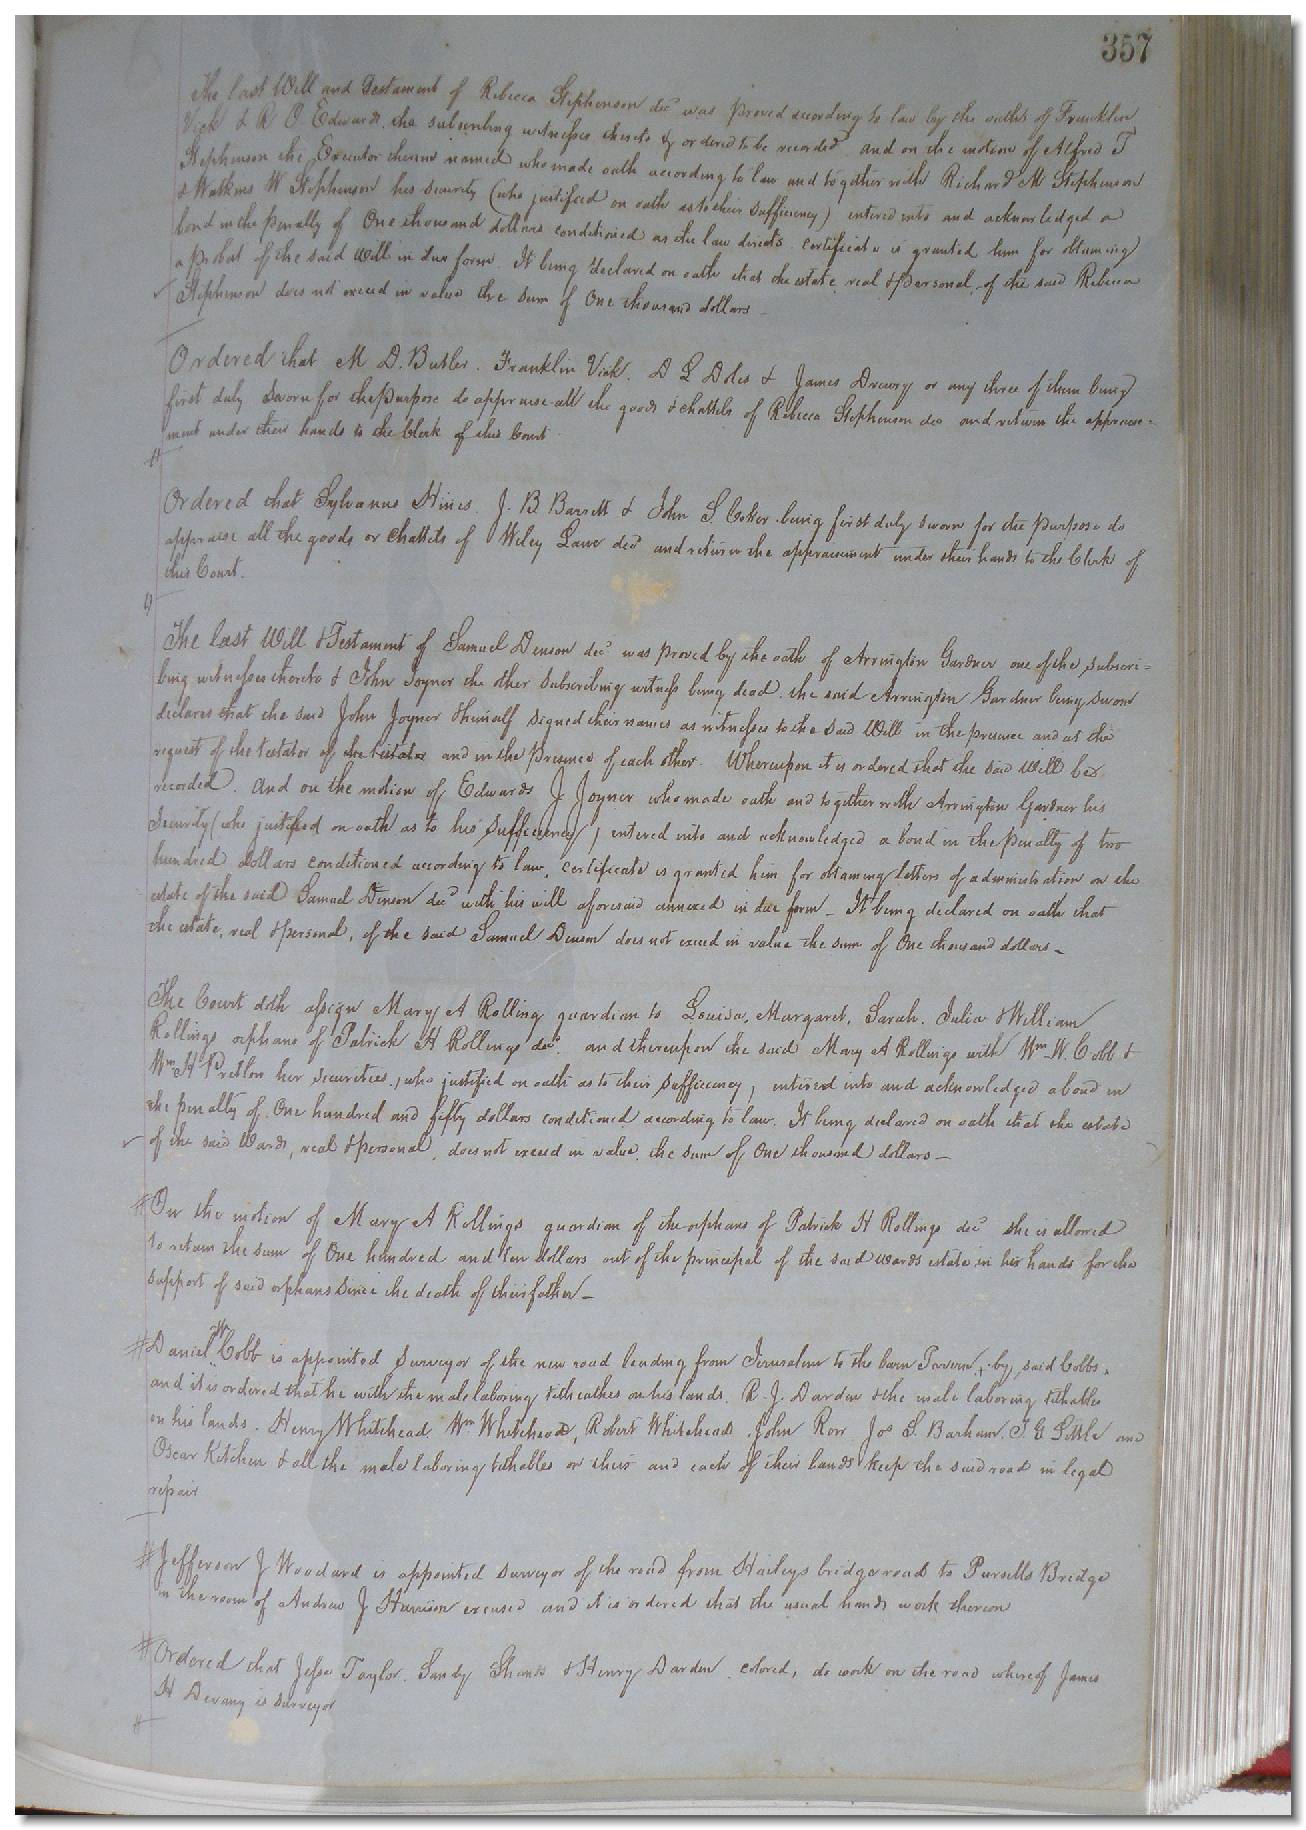 357
The last Will and Testament of Rebecca Stephenson decd was proved according to law by the oaths of Franklin
Vick & R O Edwards, the subscribing witnesses thereto & ordered to be recorded and on the motion of Alfred T
Stephenson the Executor therein named who made oath according to law and together with Richard M Stephenson
& Watkins W Stephenson his security (who justified on oath as to their sufficiency) entered into and acknowledged a
bond in the penalty of One thousand dollars conditioned as the law directs certificate is granted him for obtaining
a probat of the said Will in due form. It being declared on oath that the estate, real & personal, of the said Rebecca
Stephenson does not exceed in value the sum of One thousand dollars
Ordered that M D. Butler. Franklin Vick. D L Doles & James Drewry or any three of them being
first duly sworn for the purpose do appraise all the goods & chattels of Rebecca Stephenson dec and return the appraise=
ment under their hands to the Clerk of this Court
Ordered that Sylvanus Hines. J. B. Barrett & John S. Coker being first duly sworn for the purpose do
appraise all the goods or chattels of Wiley Lawr decd and return the appraisement under their hands to the Clerk of
this Court.
The last Will & Testament of Samuel Denson decd was proved by the oath of Arrington Gardner one of the subscri=
bing witnesses thereto & John Joyner the other subscribing witness being dead. the said Arrington Gardner being sworn
declares that the said John Joyner & himself signed their names as witnesses to the said Will in the presence and at the
request of the testator of the testator and in the presence of each other. Whereupon it is ordered that the said Will be
recorded. And on the motion of Edwards J Joyner who made oath and together with Arrington Gardner his
security (who justified on oath as to his sufficiency), entered into and acknowledged a bond in the penalty of two
hundred dollars conditioned according to law, certificate is granted him for obtaining letters of administration on the
estate of the said Samuel Denson decd with his will aforesaid annexed in due form_ It being declared on oath that
the estate, real & personal, of the said Samuel Denson does not exceed in value the sum of One thousand dollars_
The Court doth assign Mary A Rolling guardian to Louisa, Margaret, Sarah. Julia & William
Rollings orphans of Patrick H Rollings decd. and thereupon the said Mary A Rollings with Wm W. Cobb &
Wm H Pretlow her securities, (who justified on oath as to their sufficiency) entered into and acknowledged a bond in
the penalty of One hundred and fifty dollars conditioned according to law. It being declared on oath that the estate
of the said Wards, real & personal, does not exceed in value, the sum of One thousand dollars_
On the motion of Mary A Rollings guardian of the orphans of Patrick H Rollings decd she is allowed
to retain the sum of One hundred and ten dollars out of the principal of the said wards estate in her hands for the
support of said orphans since the death of their father_
Daniel W Cobb is appointed surveyor of the new road leading from Jerusalem to the barn Tavern, by said Cobbs,
and it is ordered that he with the male laboring titheables on his lands. R. J. Darden & the male laboring tithables
on his lands. Henry Whitehead. Wm Whitehead, Robert Whitehead. John Rorr Jos S. Barham. T. G Little and
Oscar Kitchen & all the male laboring tithables on their and each of their lands keep the said road in legal
repair
Jefferson J Woodard is appointed surveyor of the road from Haileys bridge road to Pursells Bridge
in the room of Andrew J Harrison excused and it is ordered that the usual hands work thereon
Ordered that Jesse Taylor. Sandy Shands & Henry Darden. colored, do work on the road whereof James
H Devany is surveyor